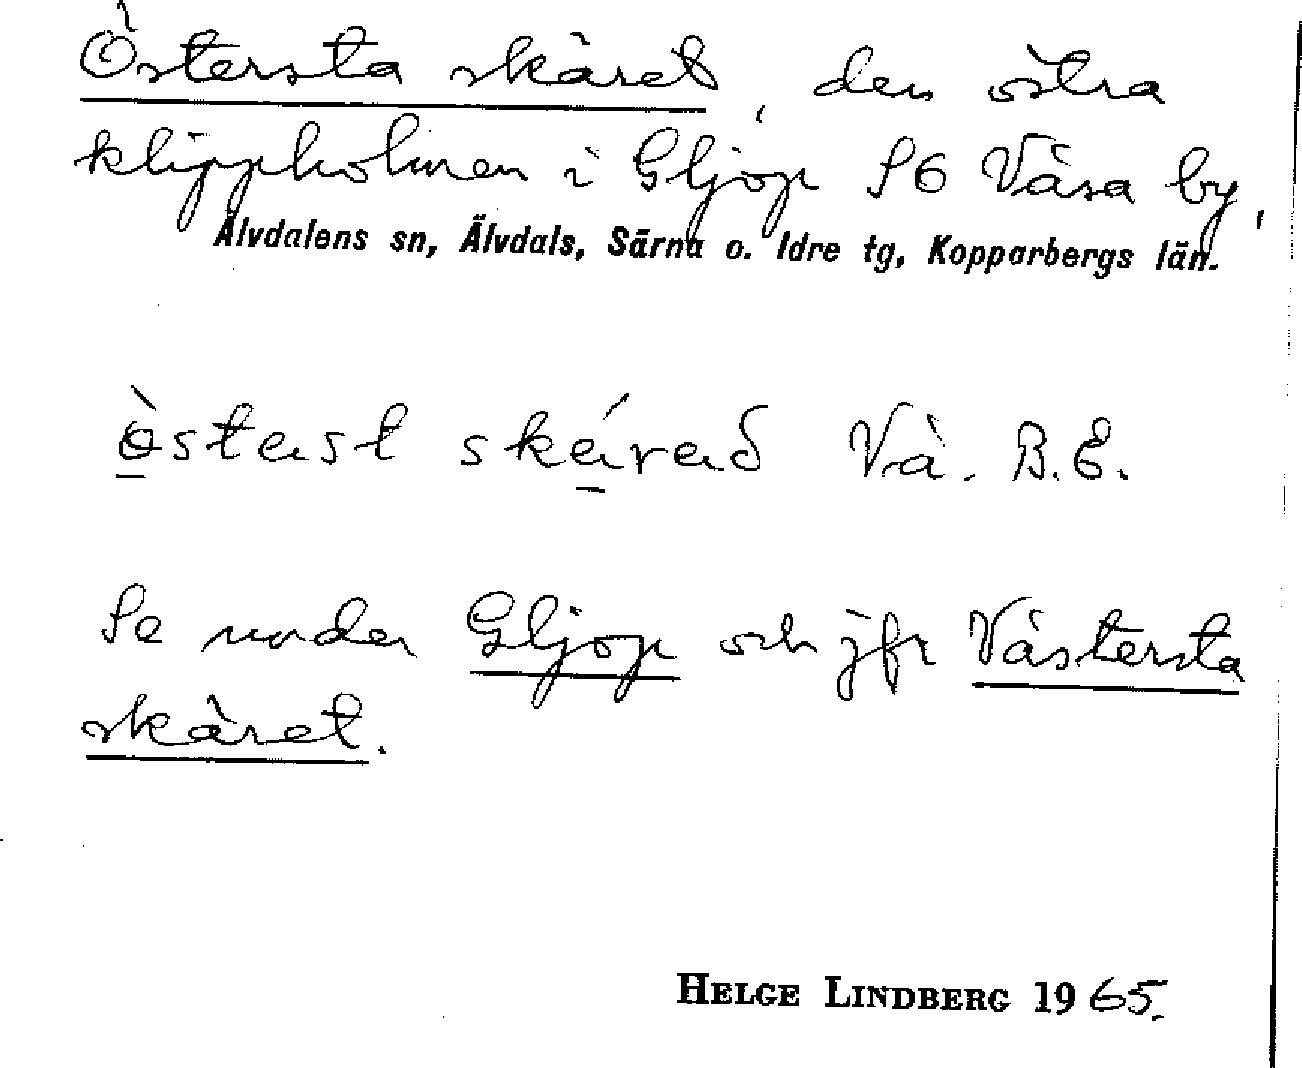 Östersta skäret, den östra
klippholmen i Gljop SÖ Våsa by,
Älvdalens sn, Älvdals, Särna o. Idre tg, Kopparbergs län.
Vå. B.E.
Se under Gljop och jfr Västersta
skäret.
HELGE LINDBERG 1965.